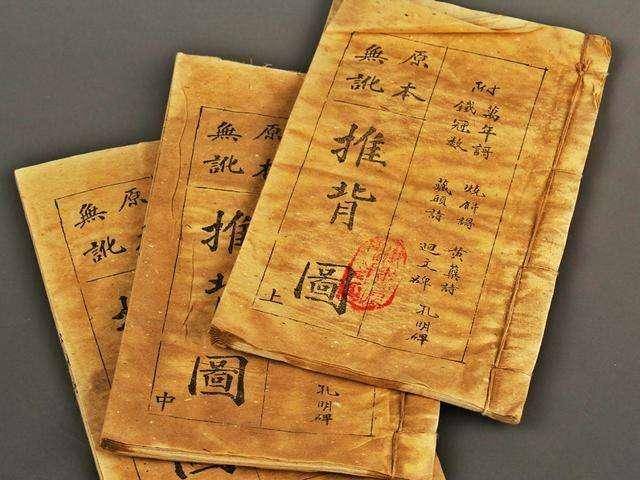 附
萬年謌 燒餅謌 黃蘗詩 孔明碑
鐵冠數 藏頭詩 迴文碑
原本
無訛
推背圖
上
孔明碑
原本
無訛
推
圖
中
原本
無訛